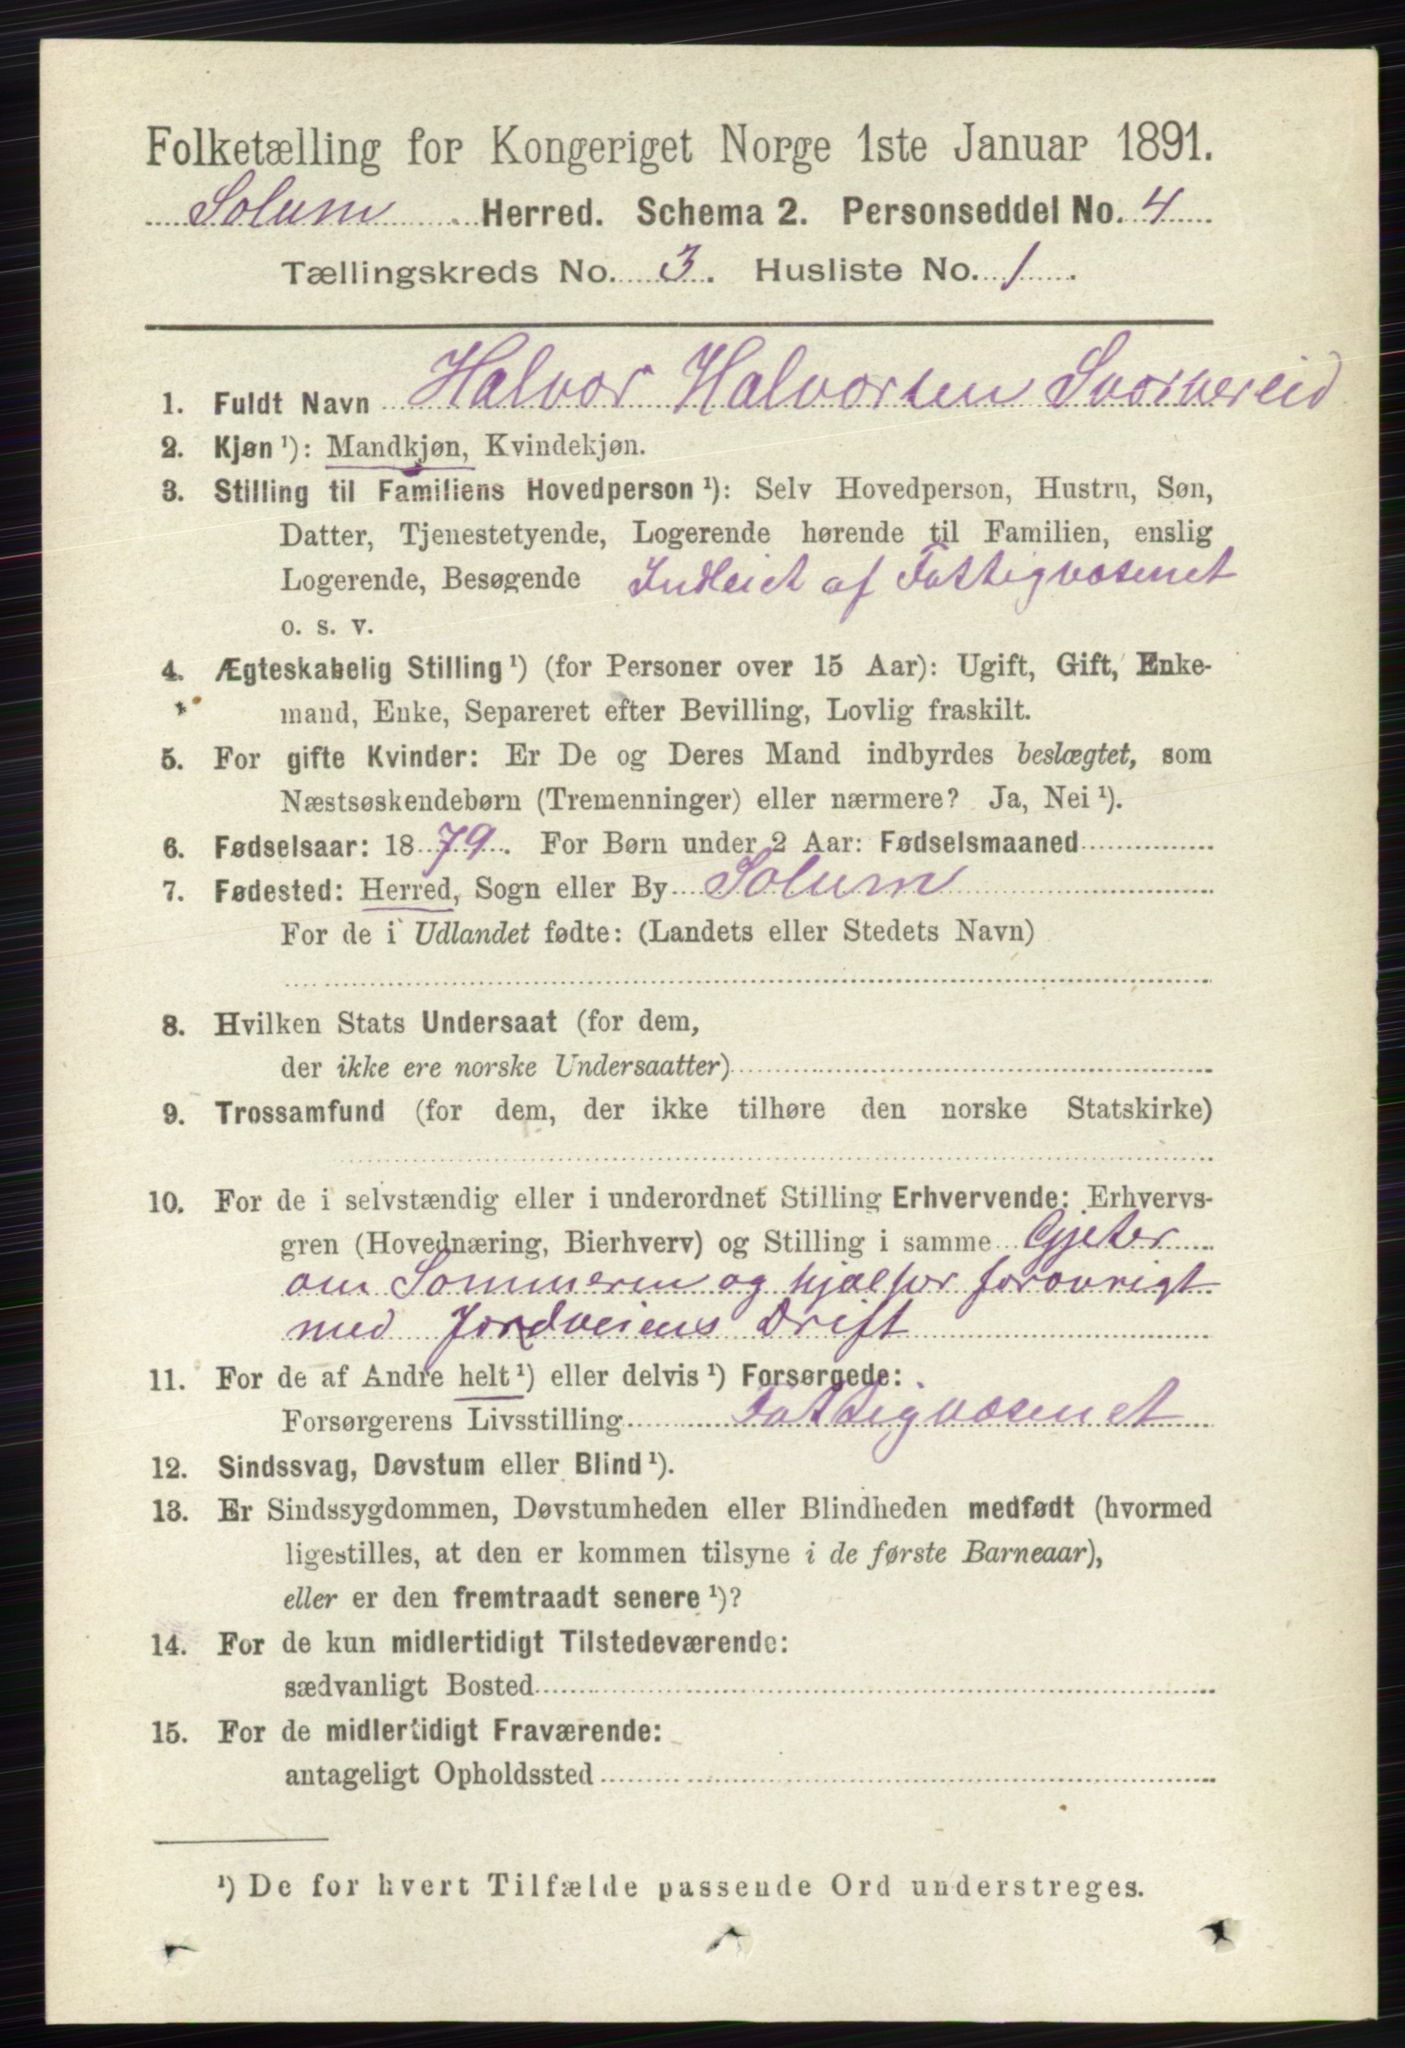 Folketælling for Kongeriget Norge 1ste Januar 1891.
Solum Herred. Schema 2. Personseddel No. 4
Tællingskreds No. 3. Husliste No. 1.
1. Fuldt Navn Halvor Halvorsen
2. Kjøn ¹): Mandkjøn, Kvindekjøn.
3. Stilling til Familiens Hovedperson ¹): Selv Hovedperson, Hustru, Søn,
Datter, Tjenestetyende, Logerende hørende til Familien, enslig
Logerende, Besøgende Indleiet af Fattigvæsenet
o. s. v.
4. Ægteskabelig Stilling ¹) (for Personer over 15 Aar): Ugift, Gift, Enke-
mand, Enke, Separeret efter Bevilling, Lovlig fraskilt.
5. For gifte Kvinder: Er De og Deres Mand indbyrdes beslægtet, som
Næstsøskendebørn (Tremenninger) eller nærmere? Ja, Nei ¹).
6. Fødselsaar: 1879. For Børn under 2 Aar: Fødselsmaaned
7. Fødested: Herred, Sogn eller By Solum
For de i Udlandet fødte: (Landets eller Stedets Navn)
8. Hvilken Stats Undersaat (for dem,
der ikke ere norske Undersaatter)
9. Trossamfund (for dem, der ikke tilhøre den norske Statskirke)
10. For de i selvstændig eller i underordnet Stilling Erhvervende: Erhvervs-
gren (Hovednæring, Bierhverv) og Stilling i samme Gjeter
om Sommeren og hjælper forøvrigt
med Jordveiens Drift
11. For de af Andre helt ¹) eller delvis ¹) Forsørgede:
Forsørgerens Livsstilling Fattigvæsenet
12. Sindssvag, Døvstum eller Blind ¹).
13. Er Sindssygdommen, Døvstumheden eller Blindheden medfødt (hvormed
ligestilles, at den er kommen tilsyne i de første Barneaar),
eller er den fremtraadt senere ¹)?
14. For de kun midlertidigt Tilstedeværende:
sædvanligt Bosted
15. For de midlertidigt Fraværende:
antageligt Opholdssted
¹) De for hvert Tilfælde passende Ord understreges.